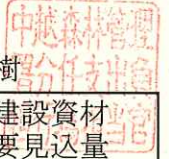 中越森林管理
署分任支出負
樹
建設資材
要見込量